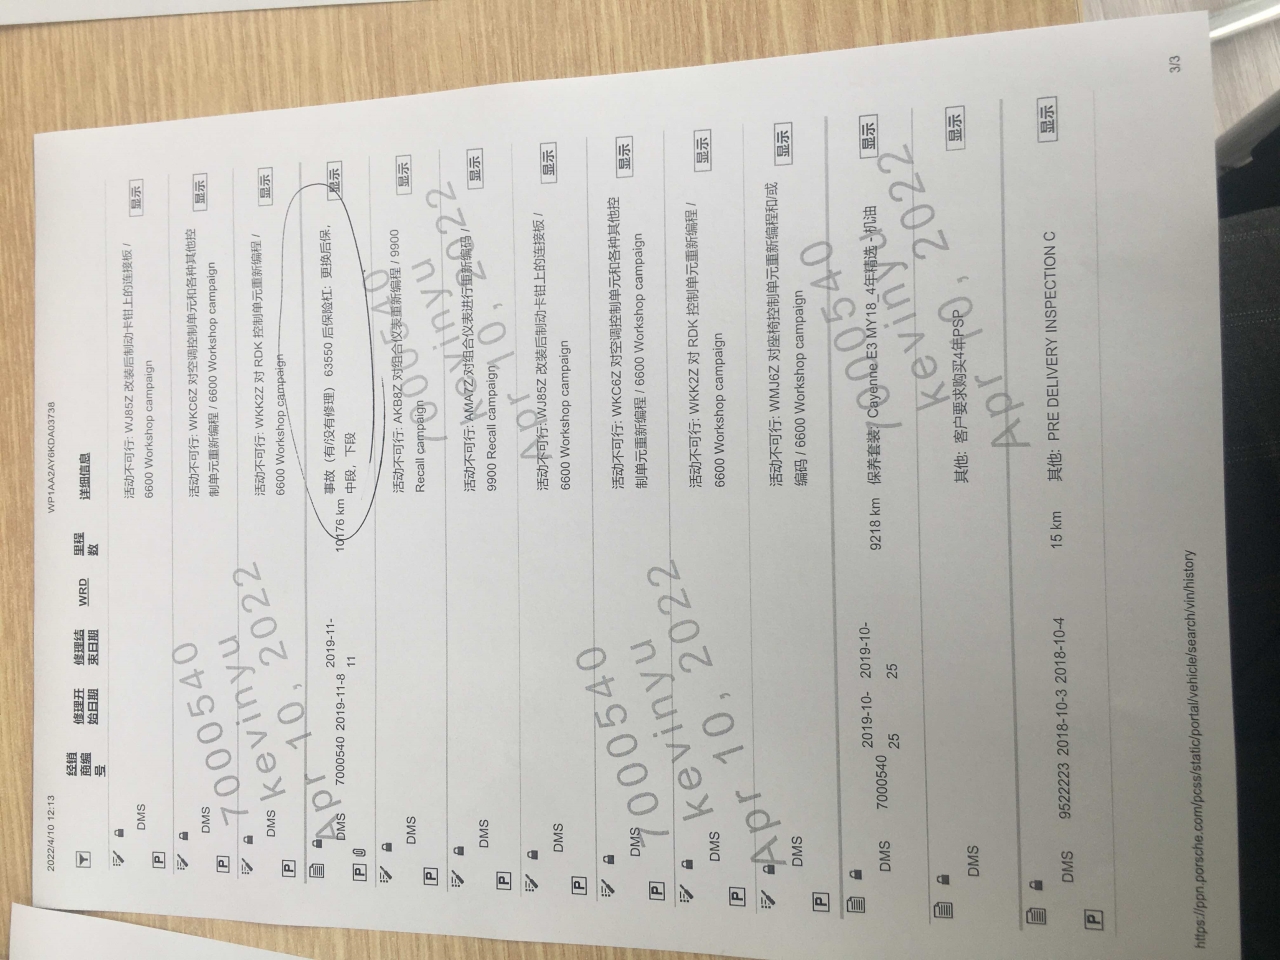 2022/4/10 12:13
WP1AA2AY6KDA03738
经销
商编
号
修理开
始日期
修理结
束日期
WRD
里程
数
详细信息
DMS
P
活动不可行: WJ85Z 改装后制动卡钳上的连接板 /
6600 Workshop campaign
显示
DMS
P
活动不可行: WKC6Z 对空调控制单元和各种其他控
制单元重新编程 / 6600 Workshop campaign
显示
DMS
P
活动不可行: WKK2Z 对 RDK 控制单元重新编程 /
6600 Workshop campaign
显示
7000540
kevinyu
Apr 10, 2022
DMS
P
7000540 2019-11-8 2019-11-
11
10176 km
事故（有/没有修理） 63550 后保险杠： 更换后保,
中段， 下段
显示
DMS
P
活动不可行: AKB8Z 对组合仪表重新编程 / 9900
Recall campaign
显示
DMS
P
活动不可行: AMA7Z 对组合仪表进行重新编码 /
9900 Recall campaign
显示
7000540
kevinyu
Apr 10, 2022
DMS
P
活动不可行: WJ85Z 改装后制动卡钳上的连接板 /
6600 Workshop campaign
显示
DMS
P
活动不可行: WKC6Z 对空调控制单元和各种其他控
制单元重新编程 / 6600 Workshop campaign
显示
DMS
P
活动不可行: WKK2Z 对 RDK 控制单元重新编程 /
6600 Workshop campaign
显示
7000540
kevinyu
Apr 10, 2022
DMS
P
活动不可行: WMJ6Z 对座椅控制单元重新编程和/或
编码 / 6600 Workshop campaign
显示
DMS
7000540 2019-10- 2019-10-
25 25
9218 km
保养套装: Cayenne E3 MY18_4年精选 - 机油
显示
DMS
其他: 客户要求购买4年PSP
显示
7000540
kevinyu
Apr 10, 2022
DMS
P
9522223 2018-10-3 2018-10-4
15 km
其他: PRE DELIVERY INSPECTION C
显示
https://ppn.porsche.com/pcss/static/portal/vehicle/search/vin/history
3/3